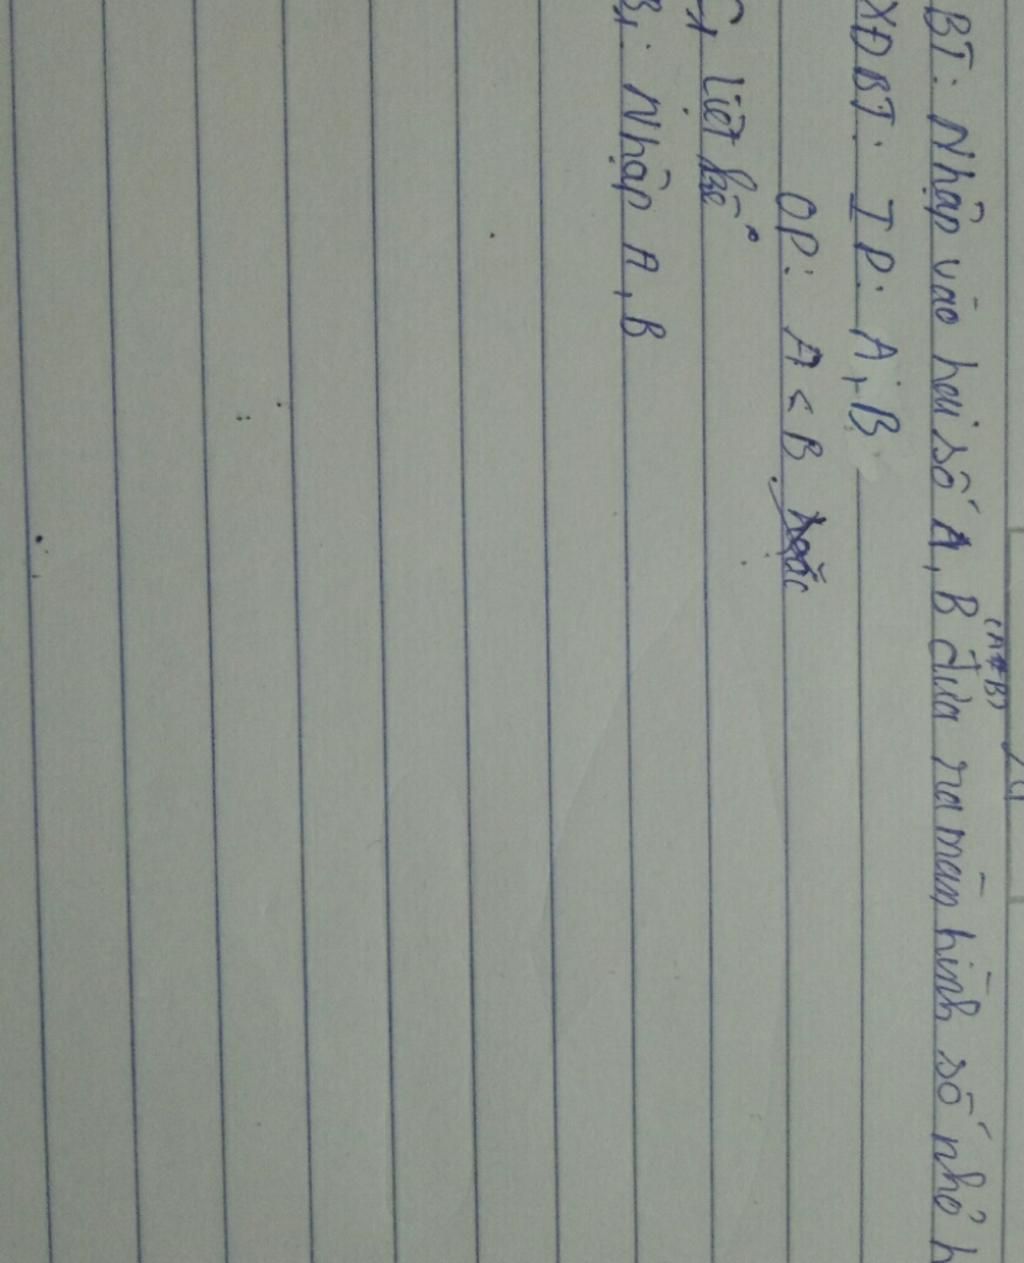 (A≠B)
BT: Nhập vào hai số A, B đưa ra màn hình số nhỏ h
XĐBT: IP: A, B
OP: A < B hoặc
C1 Liệt kê
B1: Nhập A, B